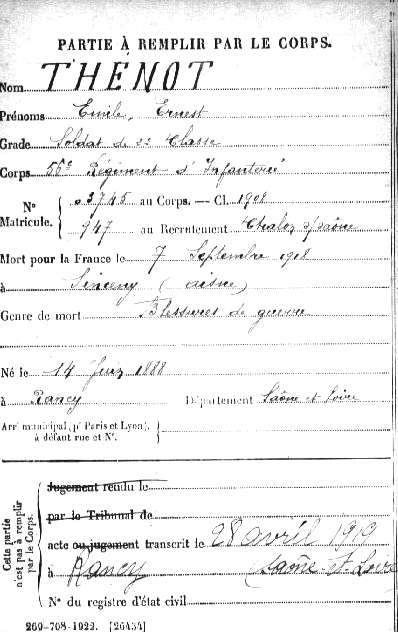 PARTIE À REMPLIR PAR LE CORPS.
Nom THENOT
Prénoms Emile, Ernest
Grade Soldat de 2e Classe
Corps 56e Régiment d'Infanterie
N° Matricule. 03745 au Corps. — Cl. 1908
947 au Recrutement Chalon s/saône
Mort pour la France le 7 Septembre 1918
à Sinceny (aisne)
Genre de mort Blessures de guerre
Né le 14 1888
à Rancy Département Saône et Loire
Arr' municipal (p' Paris et Lyon), à défaut rue et N°.
Cette partie n'est pas à remplir par le Corps.
Jugement rendu le
par le Tribunal de
acte ou jugement transcrit le 28 avril 1919
à Rancy Saône-et-Loire
N° du registre d'état civil
269-708-1922. [26434]